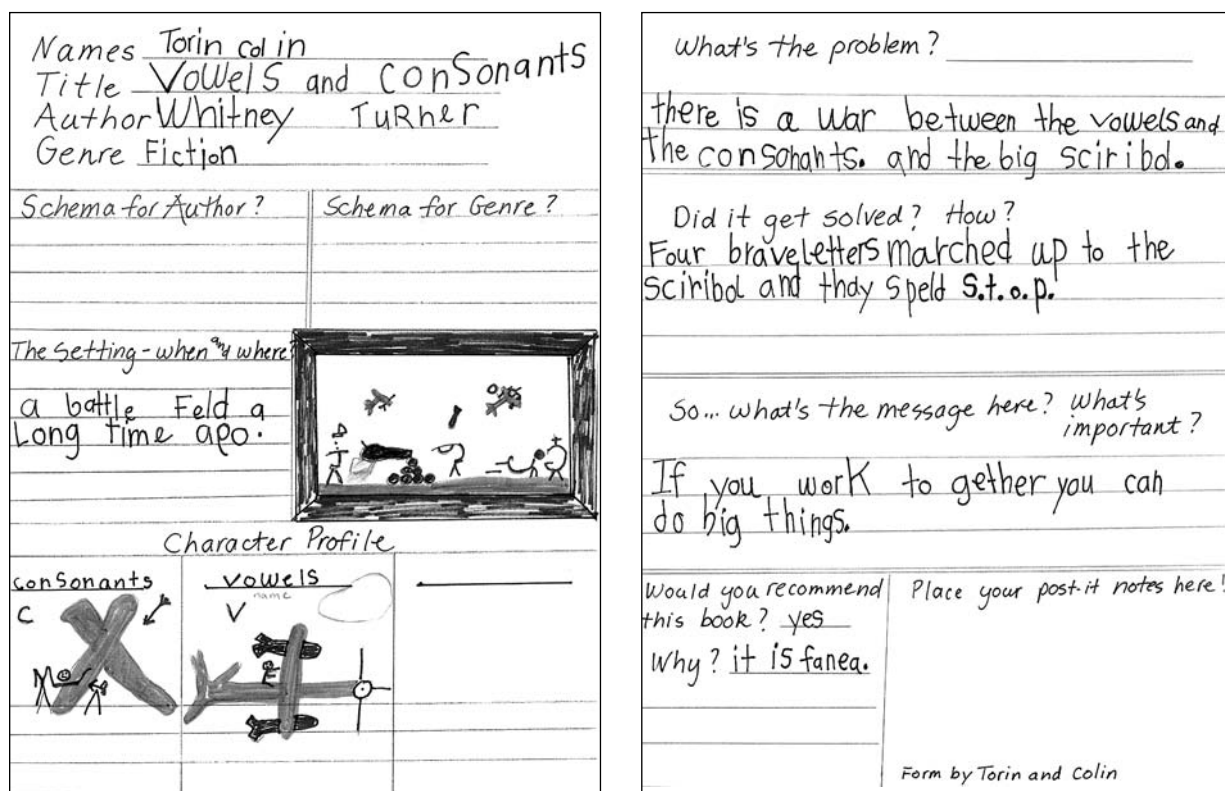 Names Torin colin
Title Vowels and ConSonants
Author Whitney TuRner
Genre Fiction
Schema for Author?
Schema for Genre?
The Setting - when and where?
a battle Feld a
Long time apo.
Character Profile
conSonants
C
vowels
name
V
What's the problem?
there is a war between the vowels and
the consonants. and the big sciribol.
Did it get solved? How?
Four brave letters marched up to the
sciribol and thay Speld S.t.o.p.
So... what's the message here? What's
important?
If you work to gether you can
do big things.
Would you recommend
this book? yes
Why? it is fanea.
Place your post-it notes here!
Form by Torin and Colin